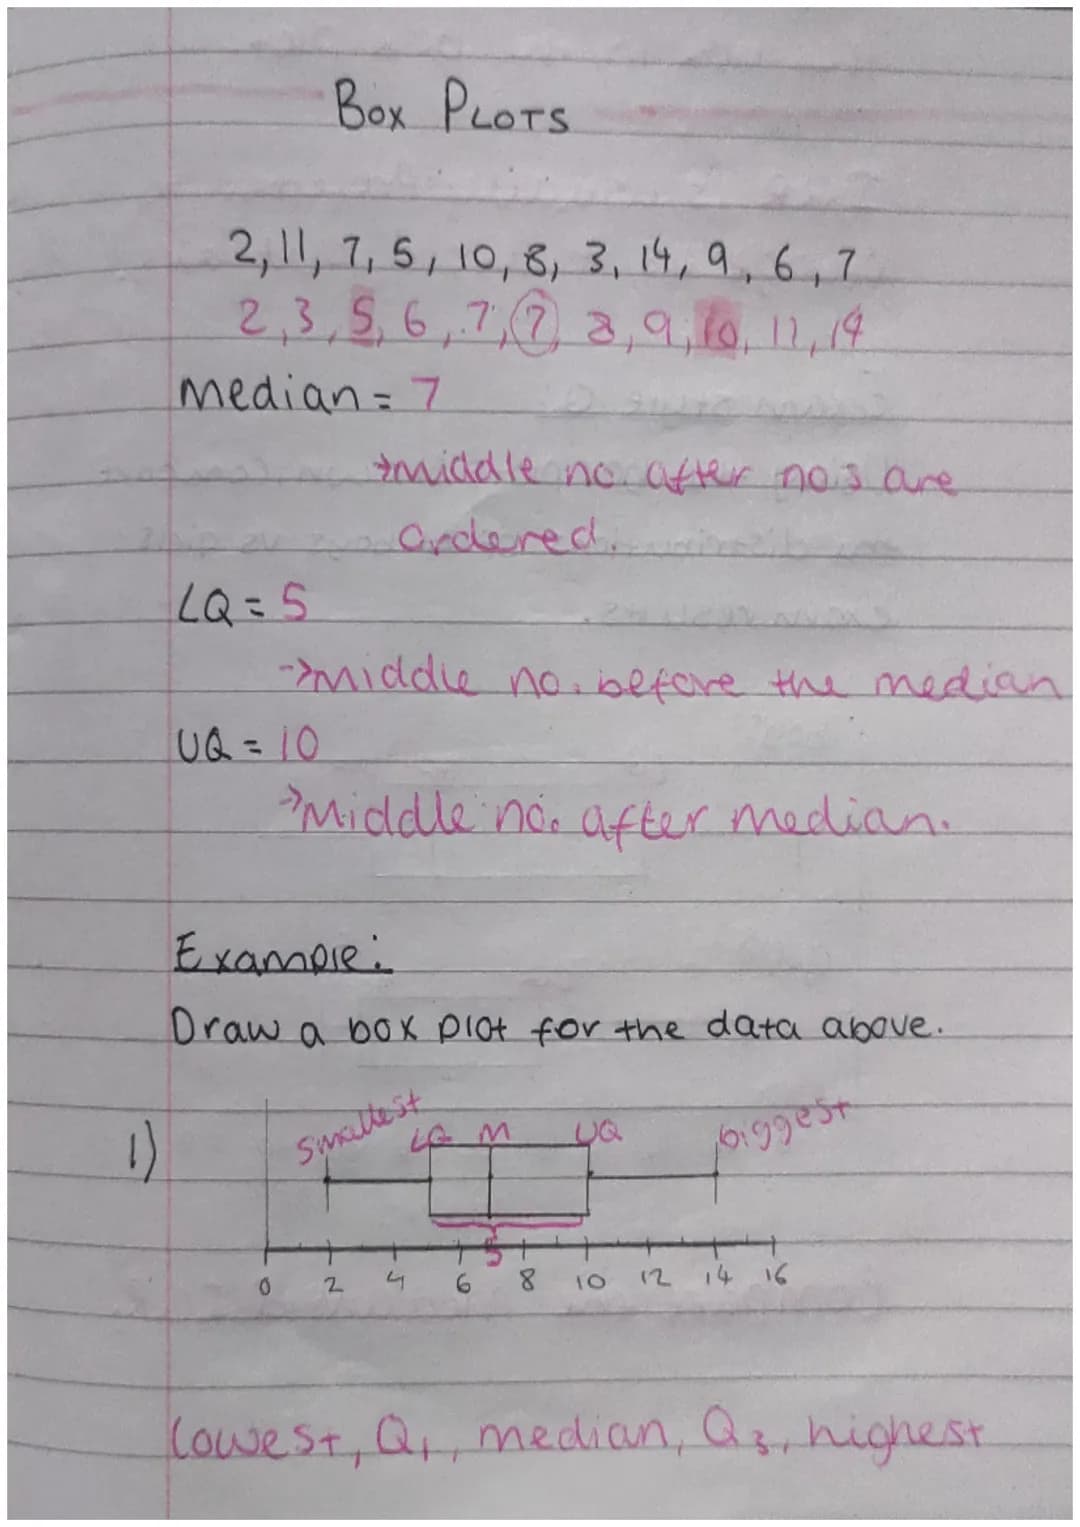 Box PLOTS
2, 11, 7, 5, 10, 8, 3, 14, 9, 6, 7
2, 3, 5, 6, 7, 7, 8, 9, 10, 11, 14
Median = 7
→middle no. after no's are
ordered.
LQ = 5
→middle no. before the median
UQ = 10
→Middle no. after median.
Example:
Draw a box plot for the data above.
1)
smallest LQ M UQ biggest
5
0 2 4 6 8 10 12 14 16
lowest, Q1, median, Q3, highest